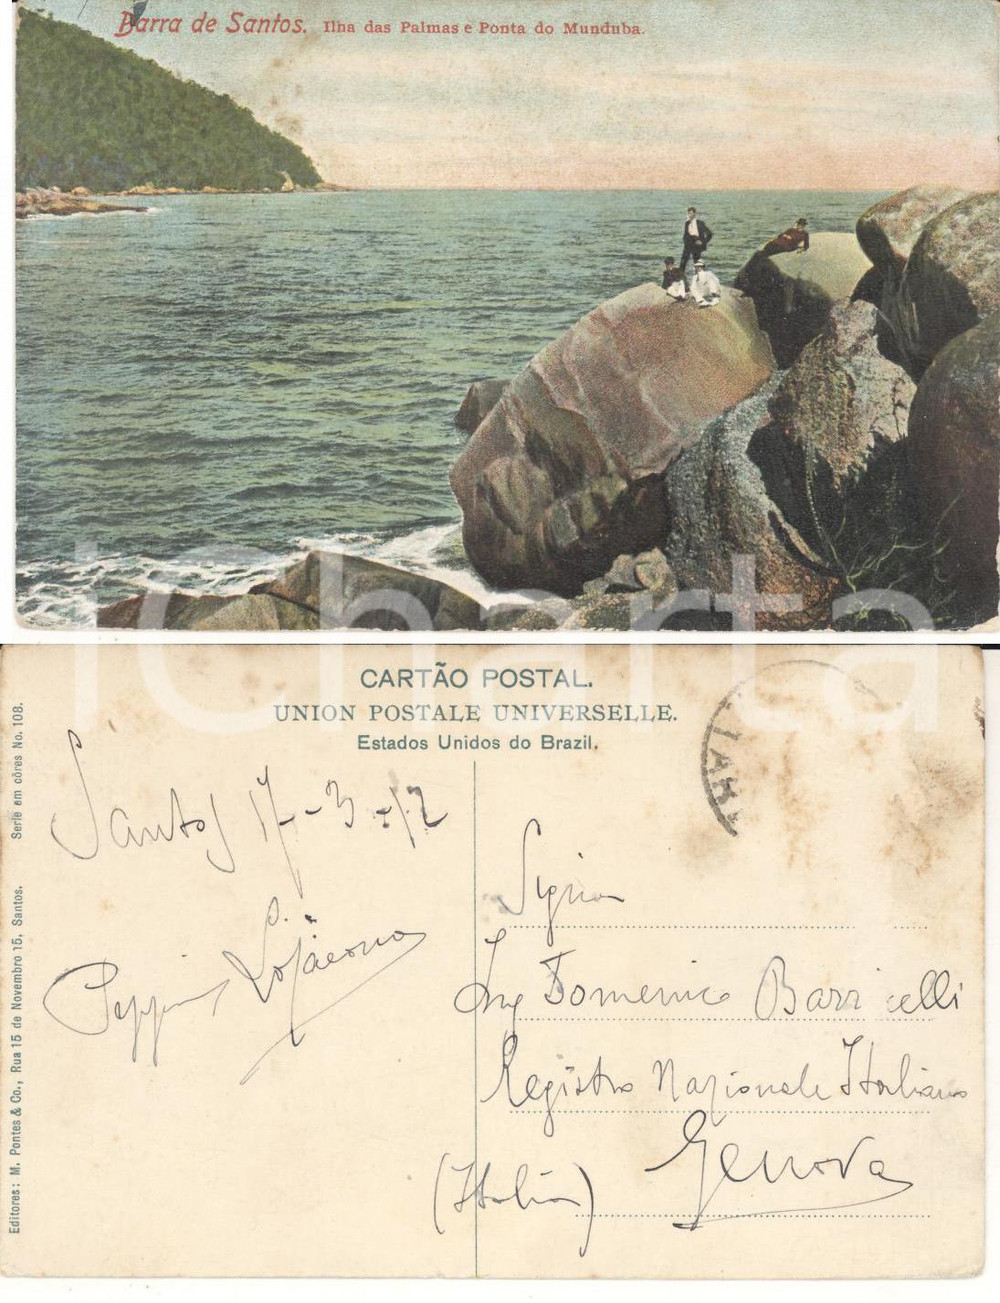 Barra de Santos. Ilha das Palmas e Ponta do Munduba.
iCharta
CARTÃO POSTAL.
UNION POSTALE UNIVERSELLE.
Estados Unidos do Brazil.
Serie em côres No. 108.
Editores: M. Pontes & Co., Rua 15 de Novembro 15, Santos.
Santos 17-3-12
Lojacono
Signor
Ing Domenico Barricelli
Registro Nazionale Italiano
Genova
(Italia)